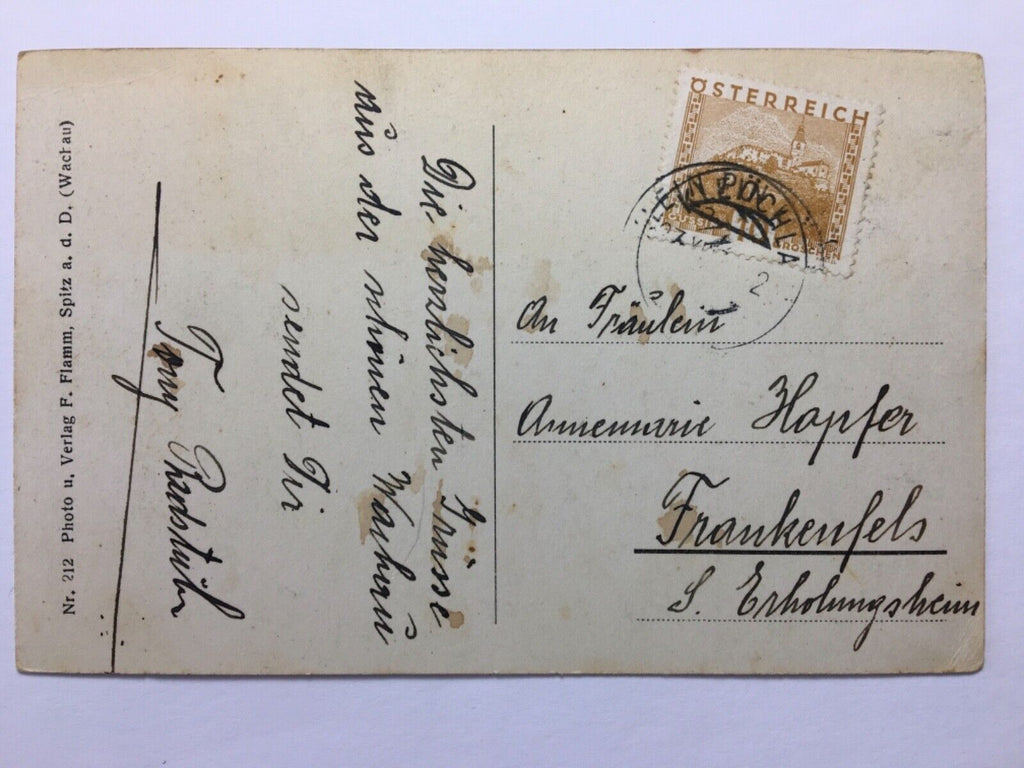 Nr. 212 Photo u. Verlag F. Flamm, Spitz a. d. D. (Wachau)
Die herzlichsten Grüsse
aus der schönen Wachau
sendet Dir
Tony
ÖSTERREICH
10
GROSCHEN
KLEIN PÖCHLA
An Fräulein
Annemarie Hopfer
Frankenfels
S. Erholungsheim